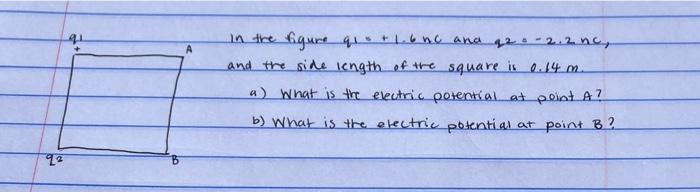 q1
+
A
q2
B
In the figure q1 = +1.6 nc and q2 = -2.2 nc,
and the side length of the square is 0.14 m.
a) What is the electric potential at point A?
b) What is the electric potential at point B?